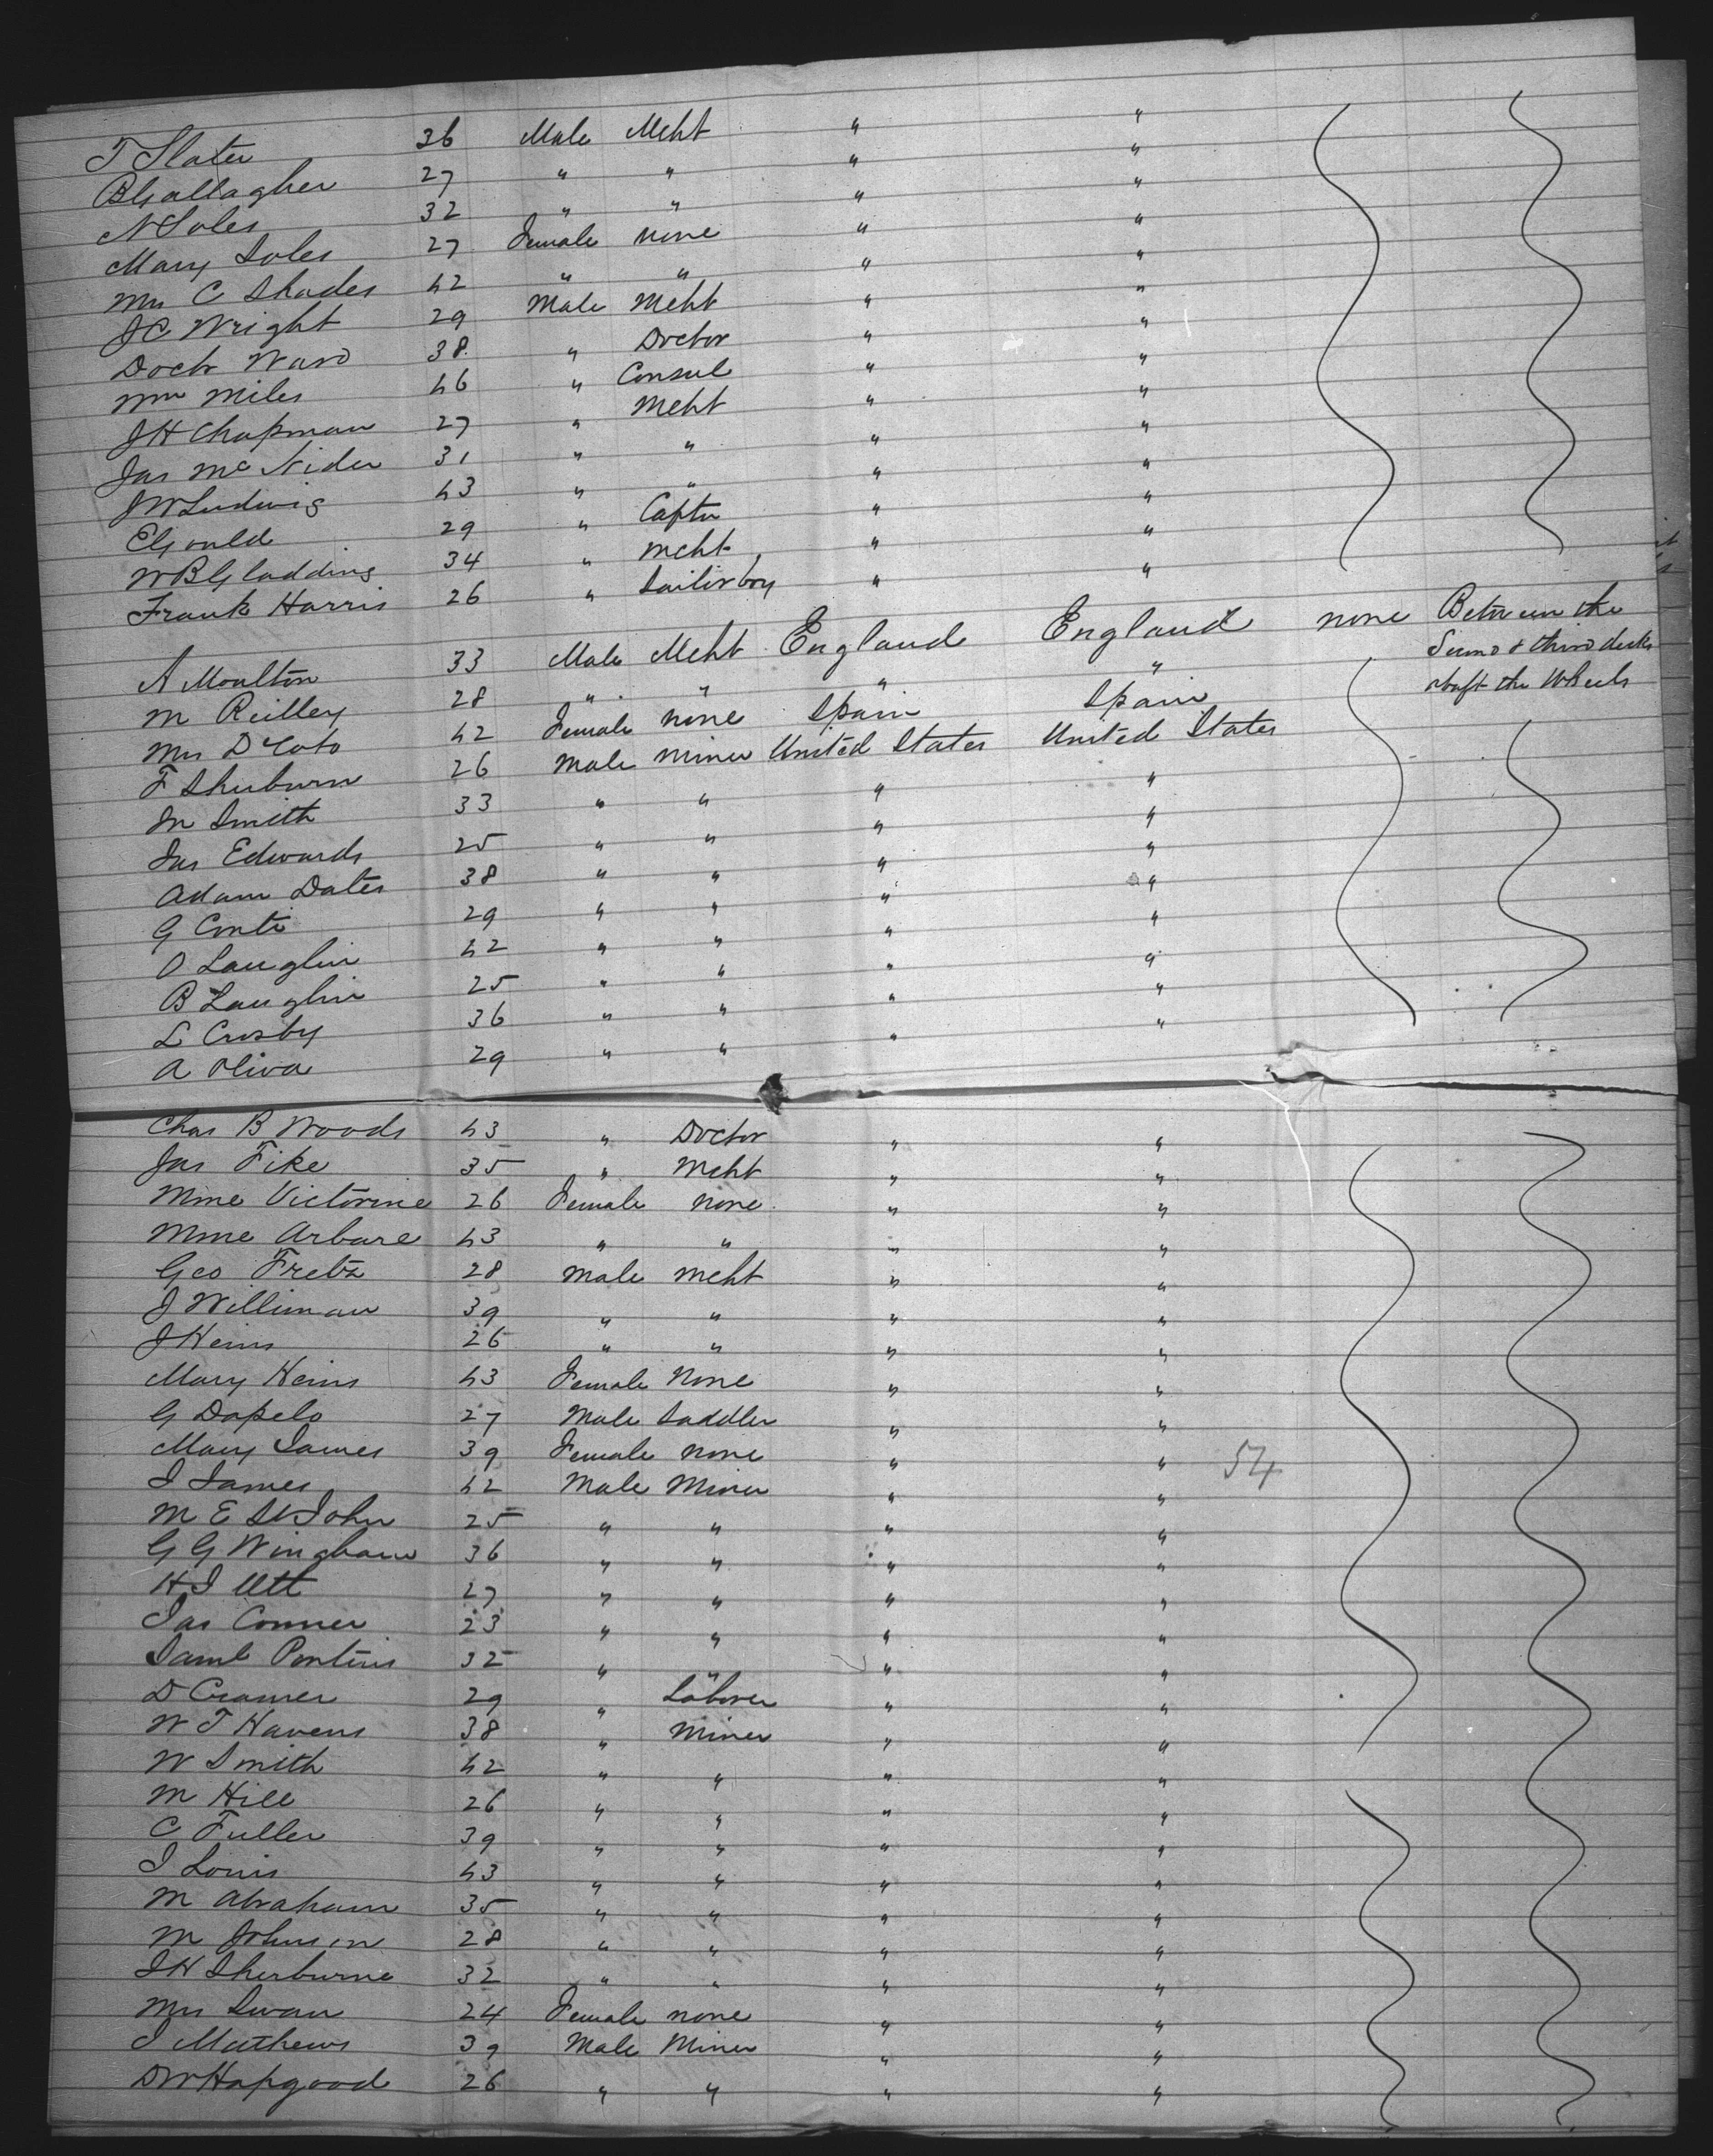 T Slater 36 Male Mcht " "
B Gallagher 27 " " " "
N Soles 32 " " " "
Mary Soles 27 Female none " "
Mrs C Shades 42 " " " "
J C Wright 29 Male Mcht " "
Doctr Ward 38 " Doctor " "
Wm Miles 46 " Consul " "
J H Chapman 27 " Mcht " "
Jas McNider 31 " " " "
J W Ludwig 43 " " " "
E Gould 29 " Captn " "
W B Gladding 34 " Mcht " "
Frank Harris 26 " Sailor boy " "
A Moulton 33 Male Mcht England England none Between the
Second & third decks
abaft the Wheels
M Reilley 28 " " " "
Mrs D Coto 42 Female none Spain Spain
F Shurburn 26 Male miner United States United States
Jn Smith 33 " " " "
Jas Edwards 25 " " " "
Adam Dates 38 " " " "
G Conti 29 " " " "
O Lauglin 42 " " " "
B Lauglin 25 " " " "
L Crosby 36 " " " "
A Oliva 29 " " " "
Chas B Woods 43 " Doctor " "
Jas Fike 35 " Mcht " "
Mme Victorine 26 Female none " "
Mme Arbare 43 " " " "
Geo Fretz 28 Male Mcht " "
J Williman 39 " " " "
J Heins 26 " " " "
Mary Heins 43 Female None " "
G Dapelo 27 Male Saddler " "
Mary James 39 Female none " " 54
I James 42 Male Miner " "
M E St John 25 " " " "
G G Wingham 36 " " " "
H I Utt 27 " " " "
Jas Conner 23 " " " "
Saml Pontius 32 " " " "
D Cramer 29 " Laborer " "
W T Havens 38 " Miner " "
W Smith 42 " " " "
M Hill 26 " " " "
C Fuller 39 " " " "
I Louis 43 " " " "
M Abraham 35 " " " "
M Johnson 28 " " " "
I H Sherburne 32 " " " "
Mrs Swan 24 Female none " "
I Mathews 39 Male Miner " "
D W Hapgood 26 " " " "